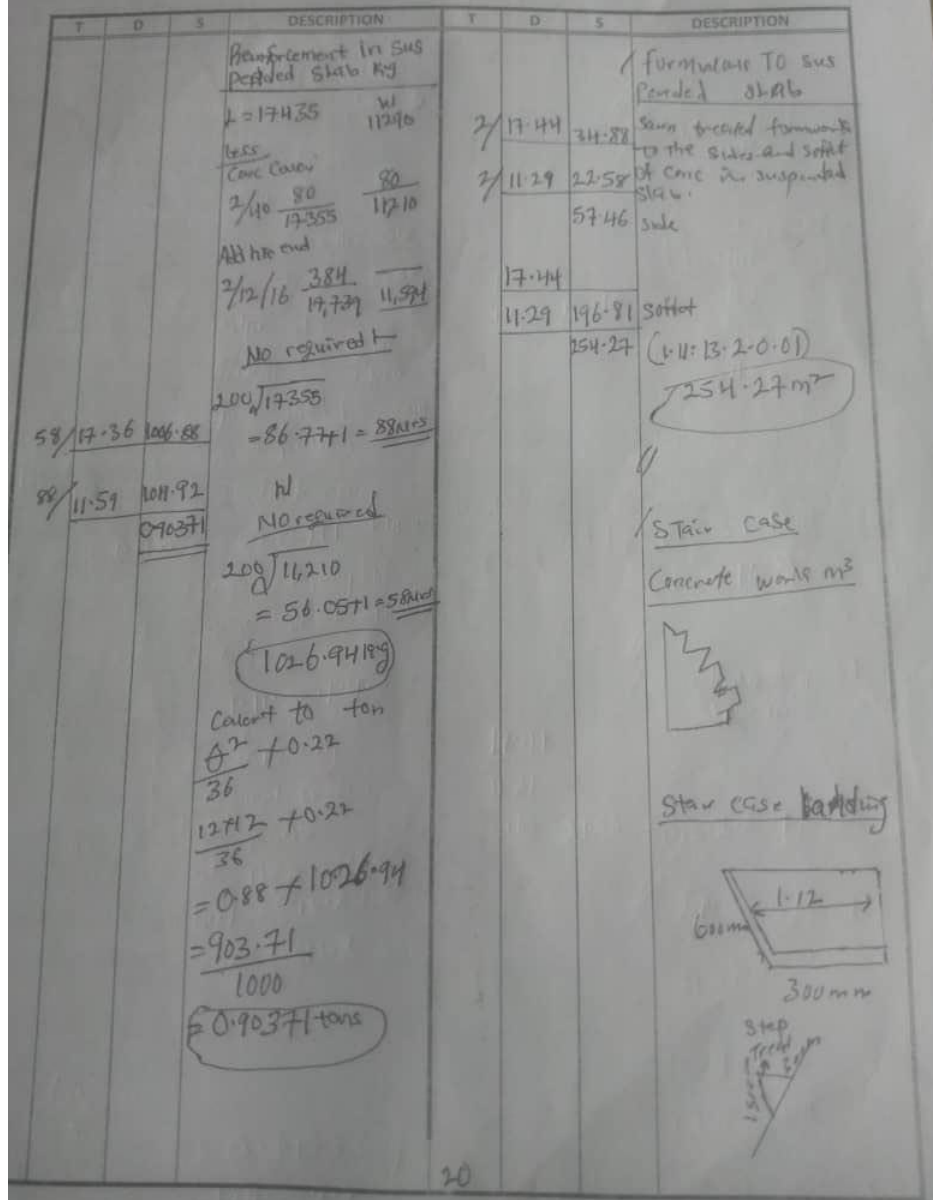 T D S DESCRIPTION
Reinforcement in sus
pended slab kg
L = 17435 W 11290
less
Conc Cover
2/40 80 80
17355 11210
Add hre end
2/12/16 384
17,739 11,594
No required L
200√17355
58/ 17.36 1006.88
= 86.77+1 = 88Nrs
88/ 11.59 1019.92
0.90371
W
NO required
200√11,210
= 56.05+1 = 58Nrs
1026.94kg
to ton
θ² × 0.22
36
12×12 × 0.22
36
= 0.88 × 1026.94
= 903.71
1000
= 0.90371 tons
T D S DESCRIPTION
formwork TO sus
pended slab
2/ 17.44 34.88 Sawn treated formwork
to the sides and soffit
2/ 11.29 22.58 of conc in suspended
slab.
57.46 side
17.44
11.29 196.81 Soffot
254.27 (1.11:13.2-0.01)
254.27 m²
STair case
Concrete works m³
Stair case landing
1.12
600mm
300mm
Step
Tread
20